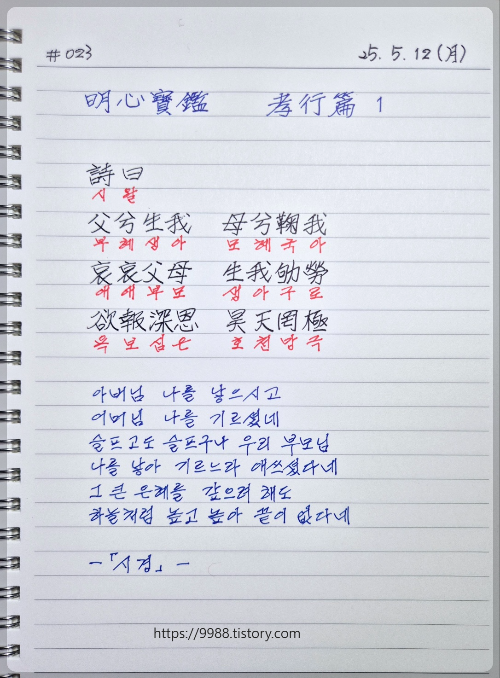 #023 25. 5. 12 (月)
明心寶鑑 孝行篇 1
詩曰
시 왈
父兮生我 母兮鞠我
부 혜 생 아 모 혜 국 아
哀哀父母 生我劬勞
애 애 부 모 생 아 구 로
欲報深恩 昊天罔極
욕 보 심 은 호 천 망 극
아버님 나를 낳으시고
어머님 나를 기르셨네
슬프고도 슬프구나 우리 부모님
나를 낳아 기르느라 애쓰셨다네
그 큰 은혜를 갚으려 해도
하늘처럼 높고 높아 끝이 없다네
-「시경」-
https://9988.tistory.com